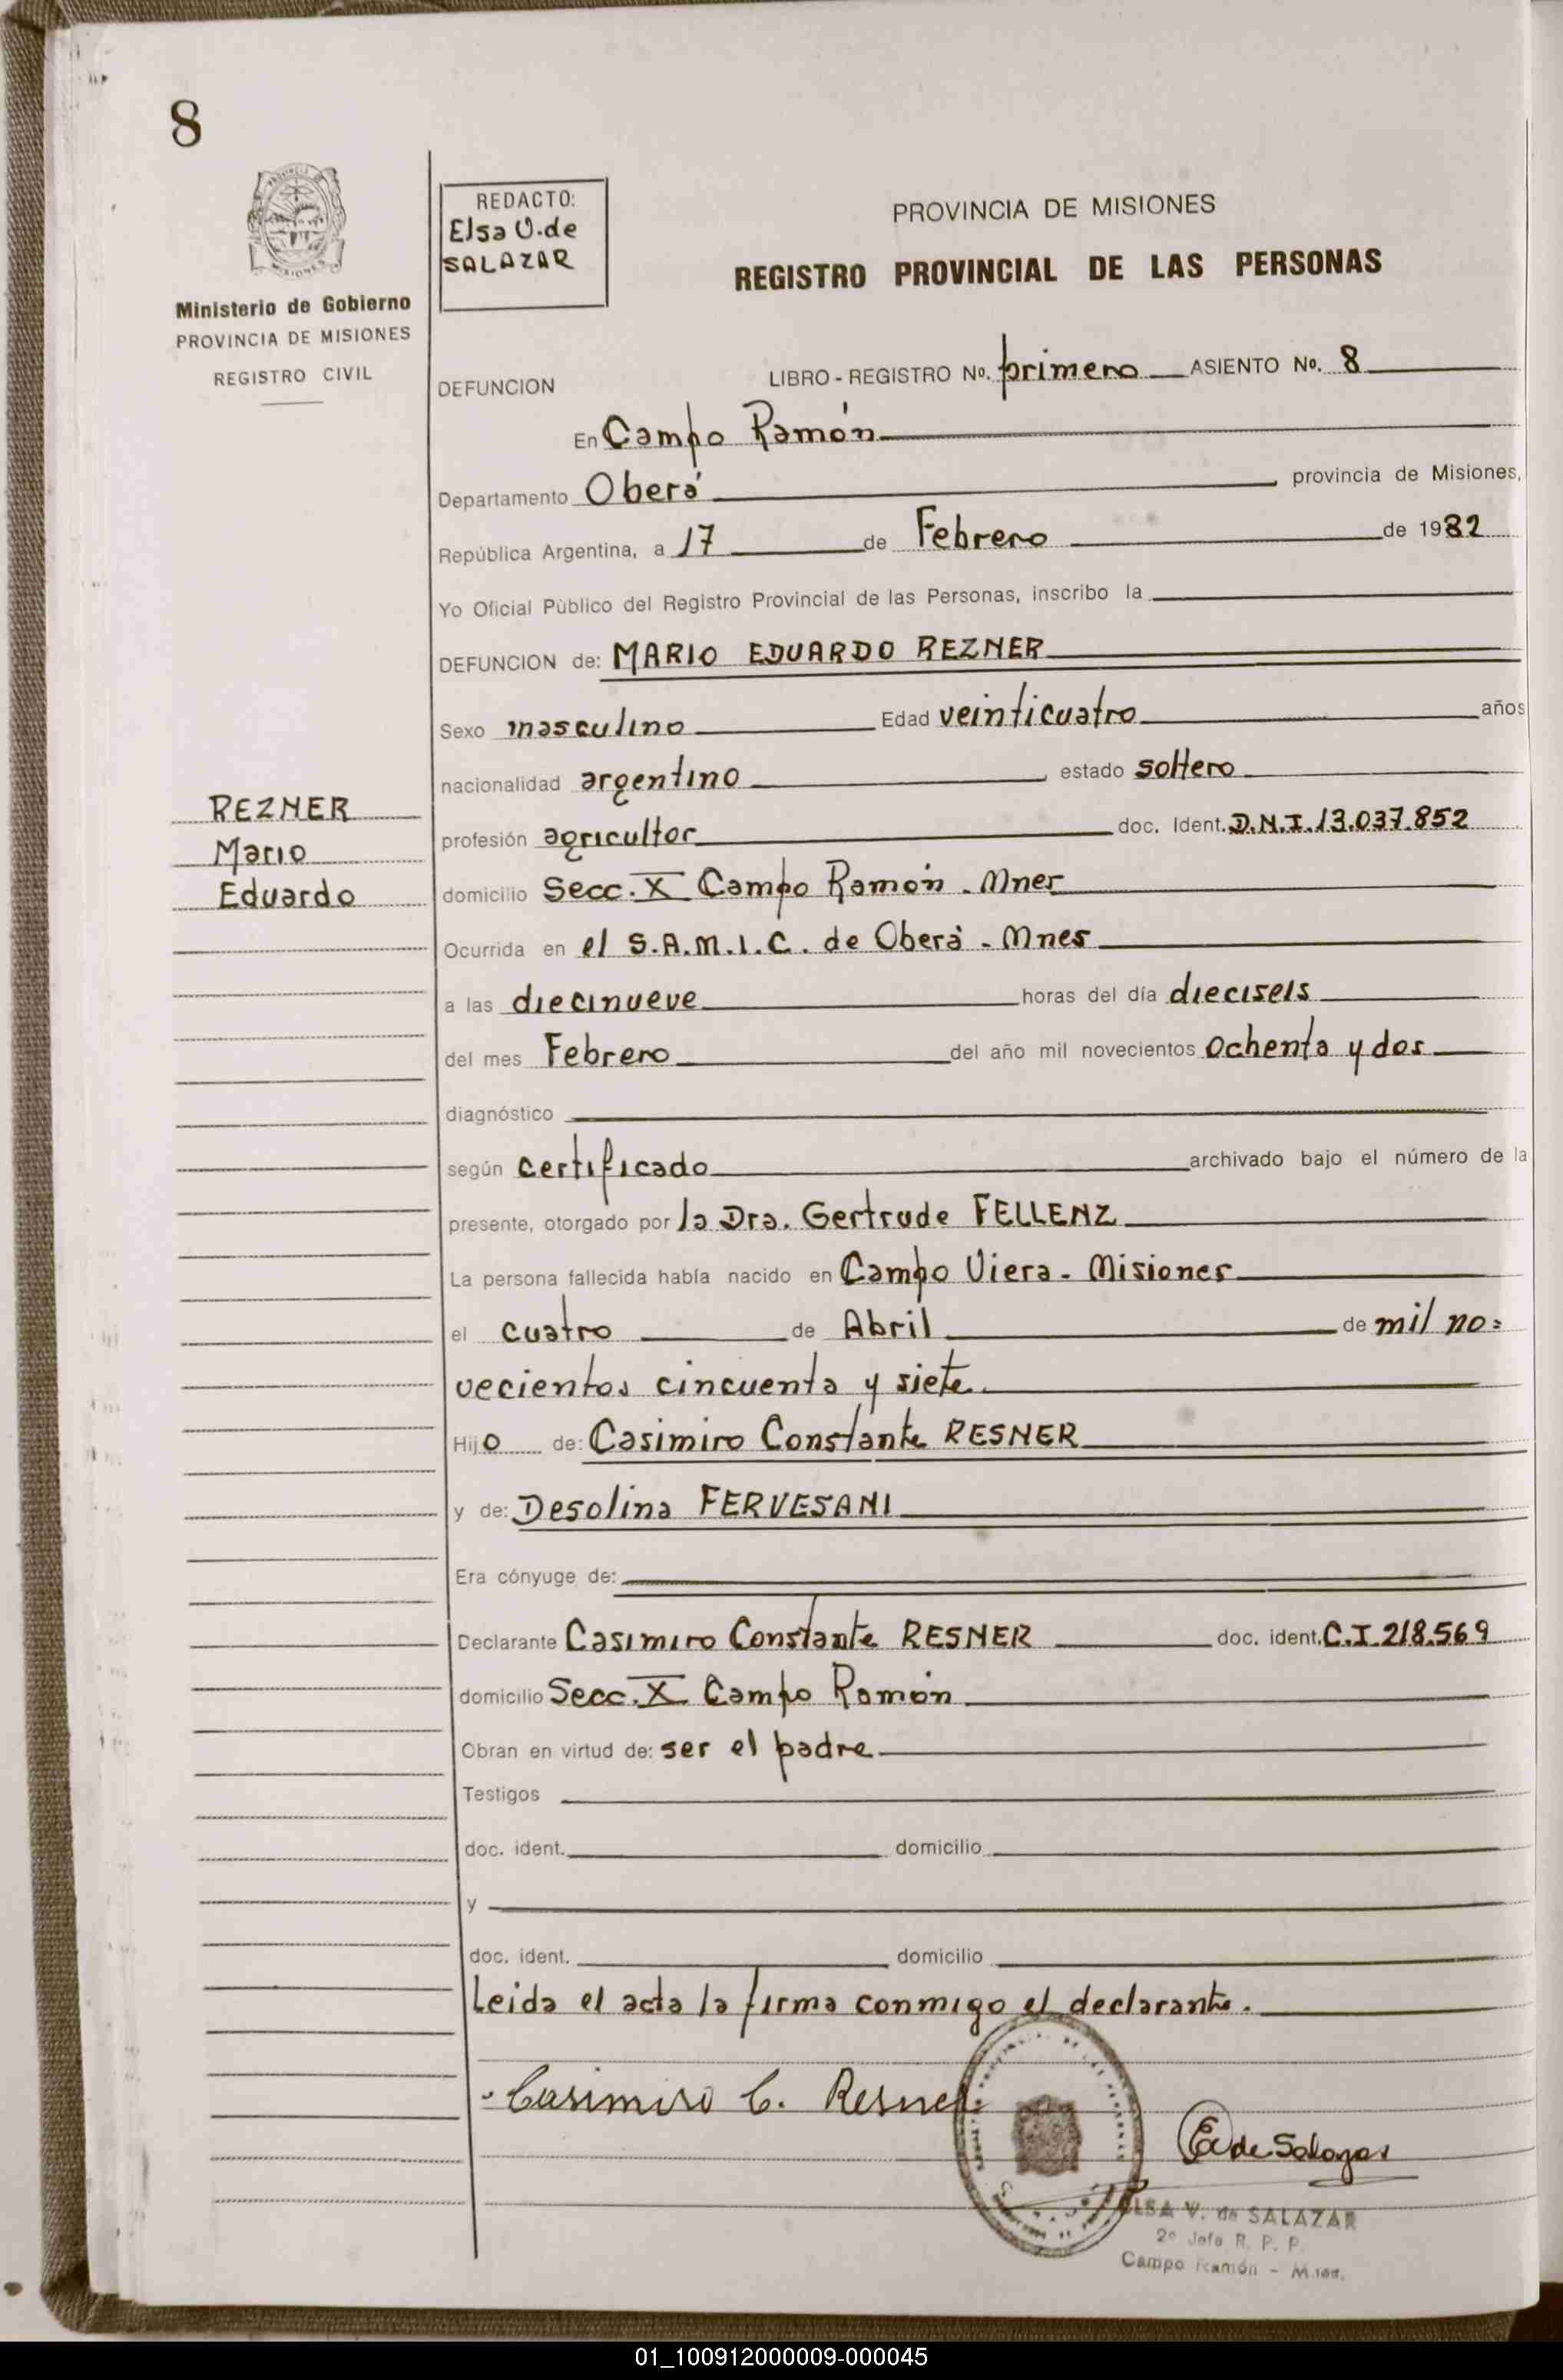 8
MISIONES
Ministerio de Gobierno
PROVINCIA DE MISIONES
REGISTRO CIVIL
REDACTO:
Elsa V. de
SALAZAR
PROVINCIA DE MISIONES
REGISTRO PROVINCIAL DE LAS PERSONAS
DEFUNCION LIBRO - REGISTRO Nº. primero ASIENTO Nº. 8
En Campo Ramón
Departamento Oberá provincia de Misiones,
República Argentina, a 17 de Febrero de 1982
Yo Oficial Pùblico del Registro Provincial de las Personas, inscribo la
DEFUNCION de: MARIO EDUARDO REZNER
Sexo masculino Edad veinticuatro años
nacionalidad argentino, estado soltero
profesión agricultor doc. Ident. D.N.I. 13.037.852
domicilio Secc. X Campo Ramón - Mnes
Ocurrida en el S.A.M.I.C. de Oberá - Mnes
a las diecinueve horas del día dieciseis
del mes Febrero del año mil novecientos ochenta y dos
diagnóstico
según certificado archivado bajo el número de la
presente, otorgado por la Dra. Gertrude FELLENZ
La persona fallecida había nacido en Campo Viera - Misiones
el cuatro de Abril de mil no=
vecientos cincuenta y siete
Hijo de: Casimiro Constante RESNER
y de: Desolina FERVESANI
Era cónyuge de:
Declarante Casimiro Constante RESNER doc. ident. C.I 218.569
domicilio Secc. X Campo Ramón
Obran en virtud de: ser el padre
Testigos
doc. ident. domicilio
y
doc. ident. domicilio
Leida el acta la firma conmigo el declarante.
REZNER
Mario
Eduardo
Casimiro C. Resner
E de Salazar
ELSA V. de SALAZAR
2º Jefe R. P. P.
Campo Ramón - Mnes.
01_100912000009-000045